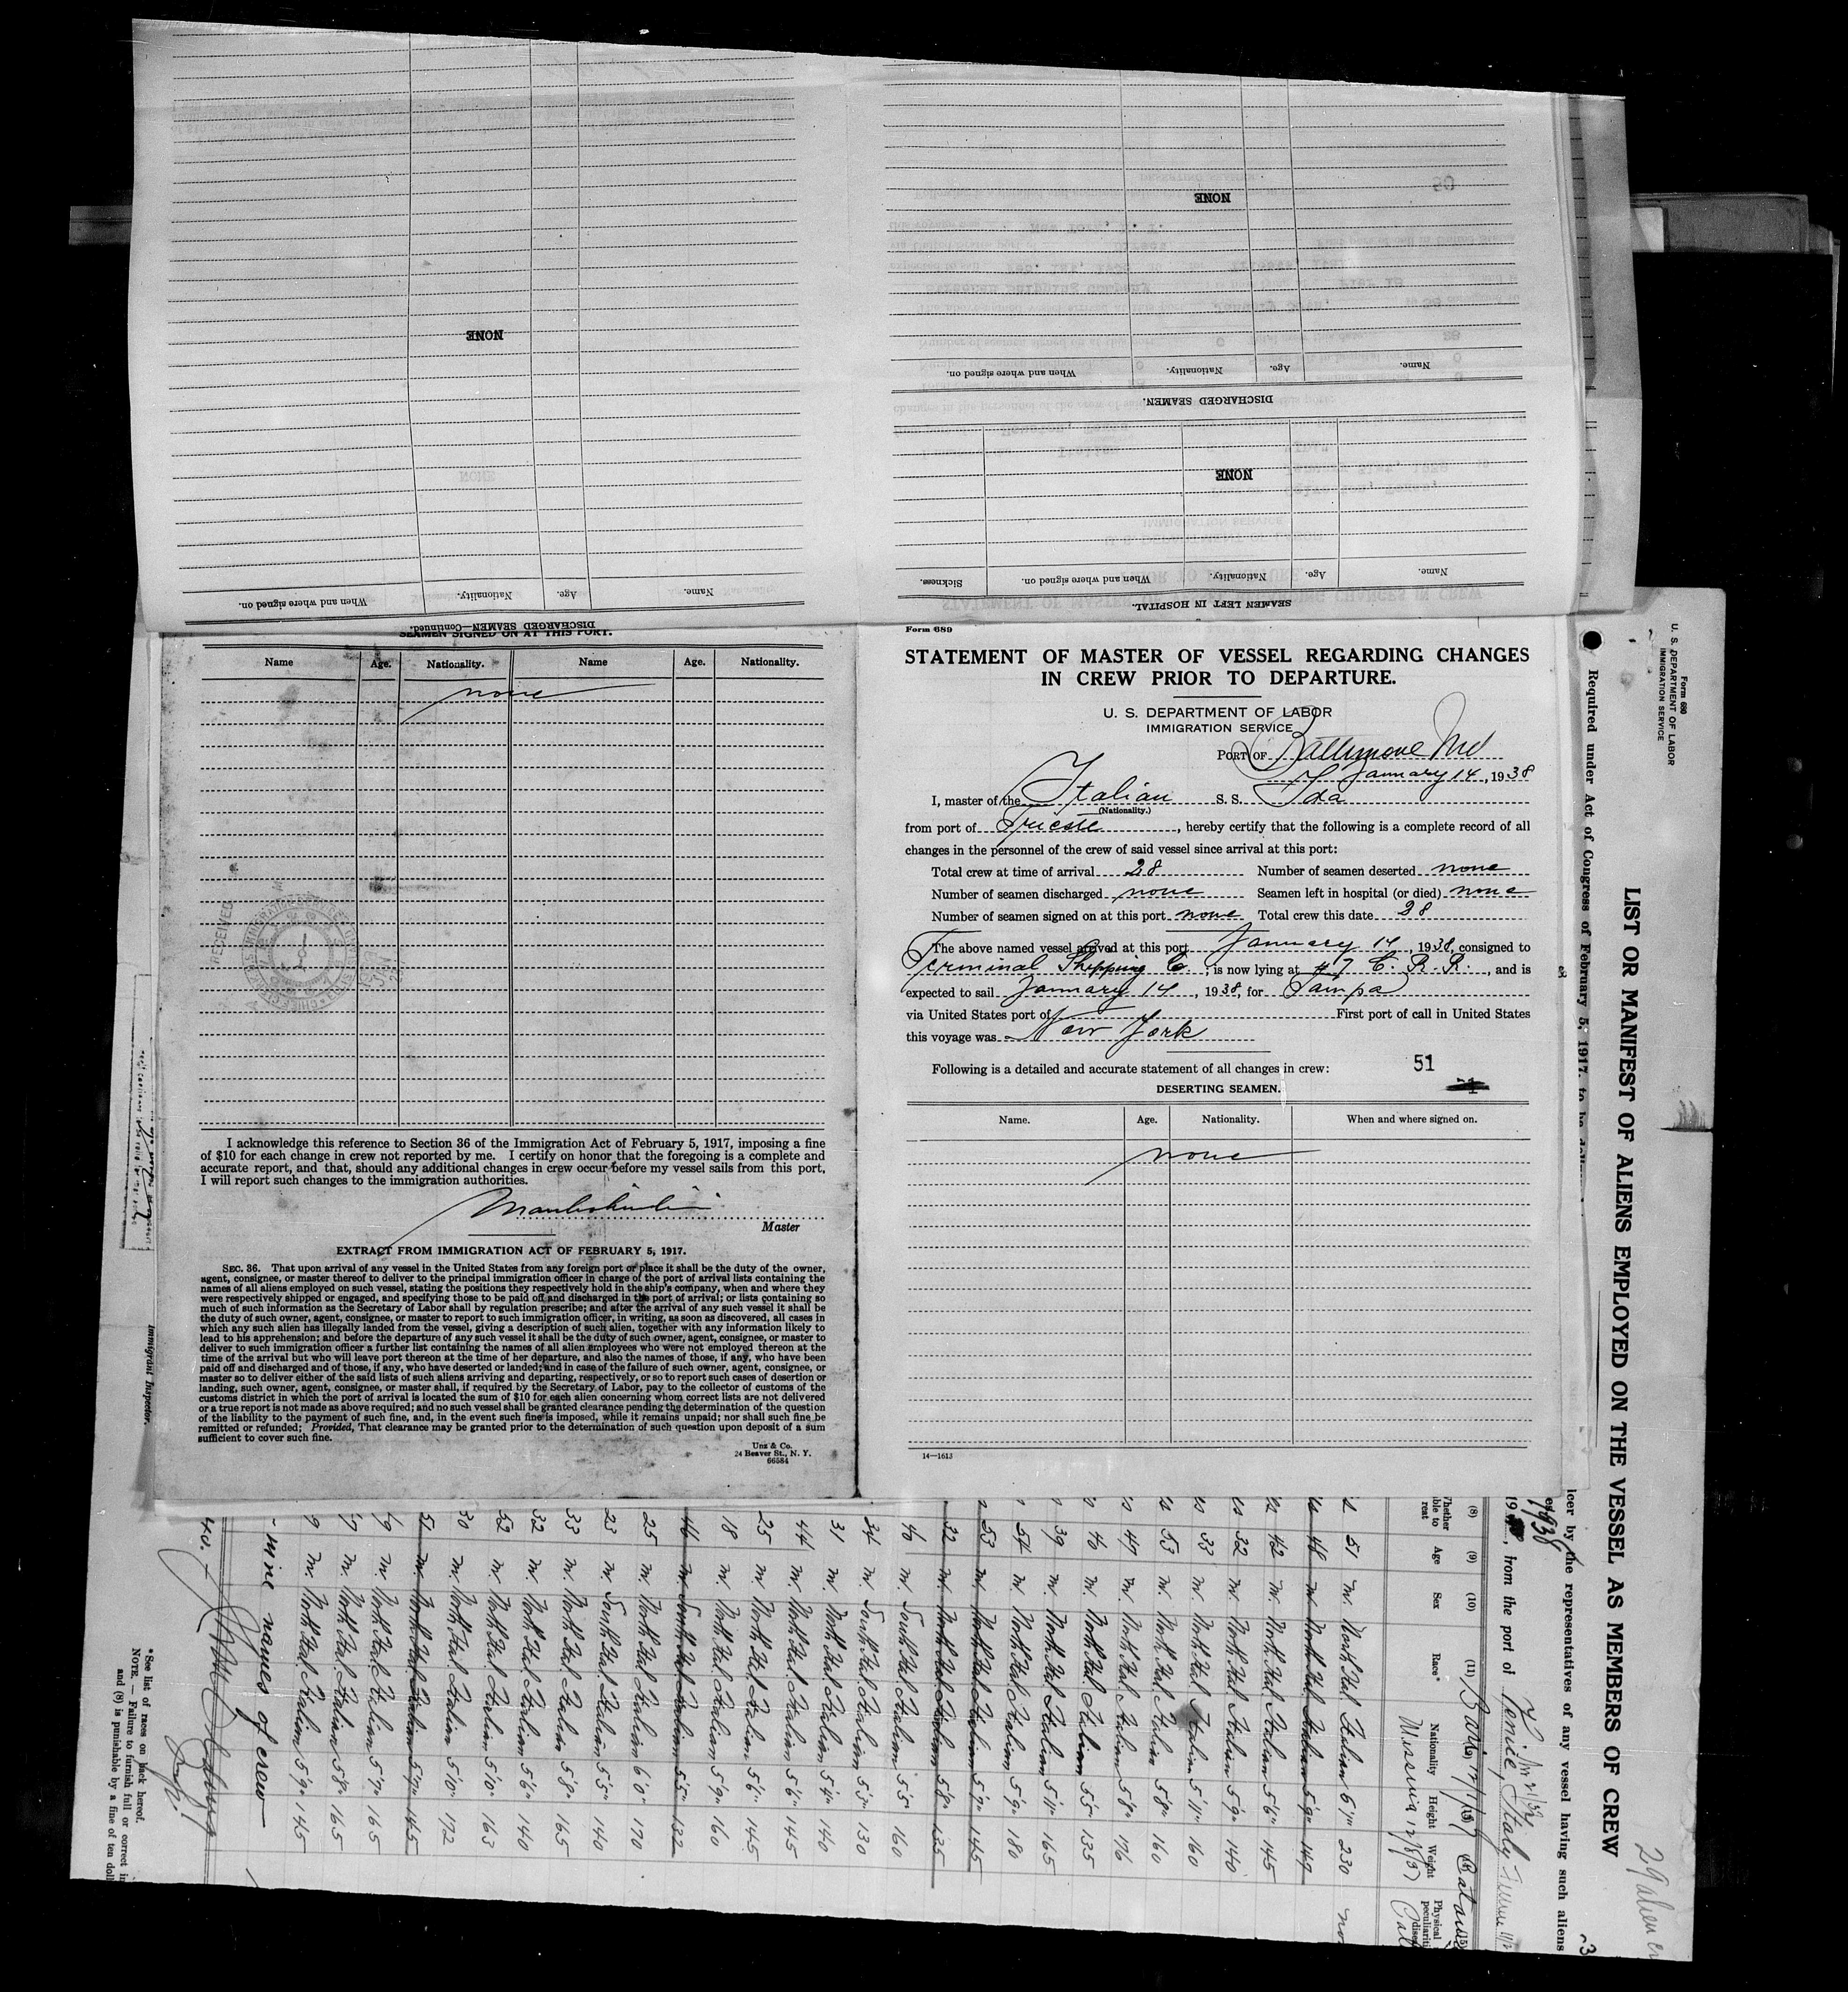 SEAMEN LEFT IN HOSPITAL.
Name. Age. Nationality. When and where signed on. Sickness.
NONE
DISCHARGED SEAMEN.
Name. Age. Nationality. When and where signed on.
NONE
DISCHARGED SEAMEN—Continued.
Name. Age. Nationality. When and where signed on.
NONE
SEAMEN SIGNED ON AT THIS PORT.
Name Age. Nationality. Name Age. Nationality.
none
RECEIVED
I acknowledge this reference to Section 36 of the Immigration Act of February 5, 1917, imposing a fine
of $10 for each change in crew not reported by me. I certify on honor that the foregoing is a complete and
accurate report, and that, should any additional changes in crew occur before my vessel sails from this port,
I will report such changes to the immigration authorities.
Master
EXTRACT FROM IMMIGRATION ACT OF FEBRUARY 5, 1917.
SEC. 36. That upon arrival of any vessel in the United States from any foreign port or place it shall be the duty of the owner,
agent, consignee, or master thereof to deliver to the principal immigration officer in charge of the port of arrival lists containing the
names of all aliens employed on such vessel, stating the positions they respectively hold in the ship's company, when and where they
were respectively shipped or engaged, and specifying those to be paid off and discharged in the port of arrival; or lists containing so
much of such information as the Secretary of Labor shall by regulation prescribe; and after the arrival of any such vessel it shall be
the duty of such owner, agent, consignee, or master to report to such immigration officer, in writing, as soon as discovered, all cases in
which any such alien has illegally landed from the vessel, giving a description of such alien, together with any information likely to
lead to his apprehension; and before the departure of any such vessel it shall be the duty of such owner, agent, consignee, or master to
deliver to such immigration officer a further list containing the names of all alien employees who were not employed thereon at the
time of the arrival but who will leave port thereon at the time of her departure, and also the names of those, if any, who have been
paid off and discharged and of those, if any, who have deserted or landed; and in case of the failure of such owner, agent, consignee, or
master so to deliver either of the said lists of such aliens arriving and departing, respectively, or so to report such cases of desertion or
landing, such owner, agent, consignee, or master shall, if required by the Secretary of Labor, pay to the collector of customs of the
customs district in which the port of arrival is located the sum of $10 for each alien concerning whom correct lists are not delivered
or a true report is not made as above required; and no such vessel shall be granted clearance pending the determination of the question
of the liability to the payment of such fine, and, in the event such fine is imposed, while it remains unpaid; nor shall such fine be
remitted or refunded; Provided, That clearance may be granted prior to the determination of such question upon deposit of a sum
sufficient to cover such fine.
Unz & Co.
24 Beaver St., N. Y.
66584
Form 689
STATEMENT OF MASTER OF VESSEL REGARDING CHANGES
IN CREW PRIOR TO DEPARTURE.
U. S. DEPARTMENT OF LABOR
IMMIGRATION SERVICE
PORT OF Baltimore Md
January 14, 1938
I, master of the Italian S. S. Ida
(Nationality.)
from port of Trieste, hereby certify that the following is a complete record of all
changes in the personnel of the crew of said vessel since arrival at this port:
Total crew at time of arrival 28 Number of seamen deserted none
Number of seamen discharged none Seamen left in hospital (or died) none
Number of seamen signed on at this port none Total crew this date 28
The above named vessel arrived at this port January 14, 1938, consigned to
Terminal Shipping Co; is now lying at #7 C. R. R., and is
expected to sail January 14, 1938, for Tampa
via United States port of First port of call in United States
this voyage was New York
Following is a detailed and accurate statement of all changes in crew: 51
DESERTING SEAMEN.
Name. Age. Nationality. When and where signed on.
none
14—1613
Form 680
U. S. DEPARTMENT OF LABOR
IMMIGRATION SERVICE
LIST OR MANIFEST OF ALIENS EMPLOYED ON THE VESSEL AS MEMBERS OF CREW
Required under Act of Congress of February 5, 1917, to be
icer by the representatives of any vessel having such aliens
1938, from the port of Venice, Italy
(8) (9) (10) (11)
Age Sex Race* Nationality Height Weight Physical
51 m. North Ital. Italian 6'1" 230
48 m. North Ital. Italian 5'9" 149
42 m. North Ital. Italian 5'6" 145
32 m. North Ital. Italian 5'9" 140
33 m. North Ital. Italian 5'11" 160
53 m. North Ital. Italian 5'8" 160
47 m. North Ital. Italian 5'8" 176
40 m. North Ital. Italian 5'5" 135
39 m. North Ital. Italian 5'11" 165
54 m. North Ital. Italian 5'9" 180
53 m. North Ital. Italian 5'9" 145
32 m. North Ital. Italian 5'8" 135
40 m. South Ital. Italian 5'5" 160
34 m. South Ital. Italian 5'5" 130
31 m. North Ital. Italian 5'4" 140
44 m. North Ital. Italian 5'6" 145
25 m. North Ital. Italian 5'6" 145
18 m. North Ital. Italian 5'9" 160
46 m. South Ital. Italian 5'5" 132
25 m. North Ital. Italian 6'0" 170
23 m. South Ital. Italian 5'5" 140
33 m. North Ital. Italian 5'8" 165
32 m. North Ital. Italian 5'6" 140
52 m. North Ital. Italian 5'10" 163
30 m. North Ital. Italian 5'10" 172
51 m. North Ital. Italian 5'7" 145
m. North Ital. Italian 5'7" 165
m. North Ital. Italian 5'8" 165
m. North Ital. Italian 5'9" 145
- nine names of crew
*See list of races on back hereof.
NOTE.—Failure to furnish full or correct in
and (9) is punishable by a fine of ten doll
Immigrant Inspector.